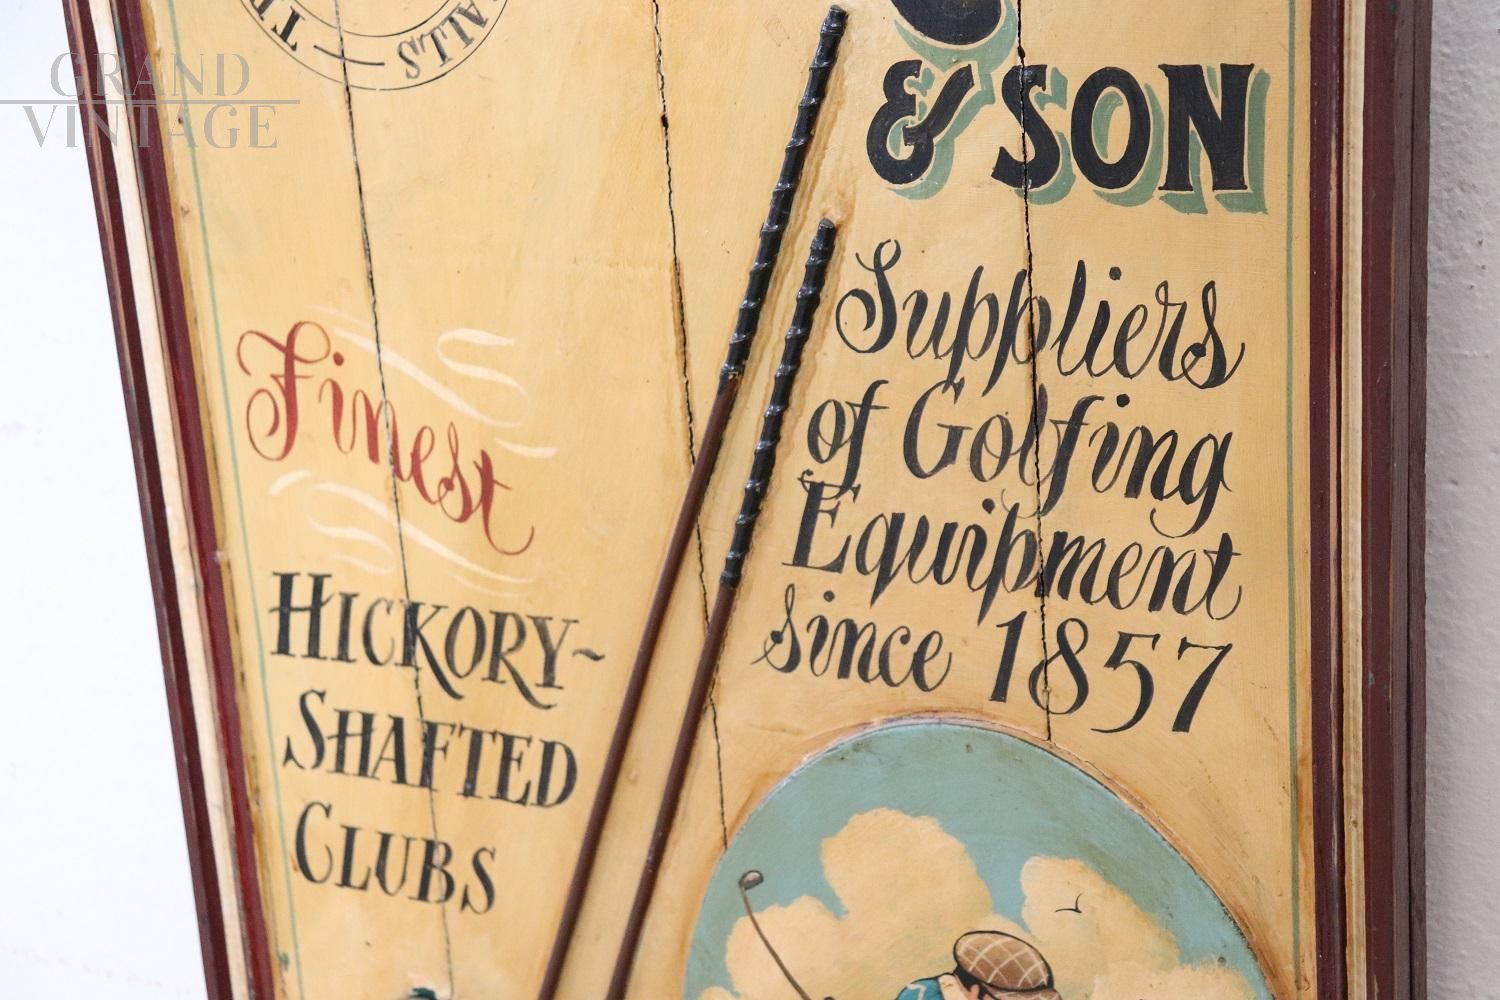 GRAND
VINTAGE
& SON
Suppliers
of Golfing
Equipment
since 1857
Finest
HICKORY~
SHAFTED
CLUBS